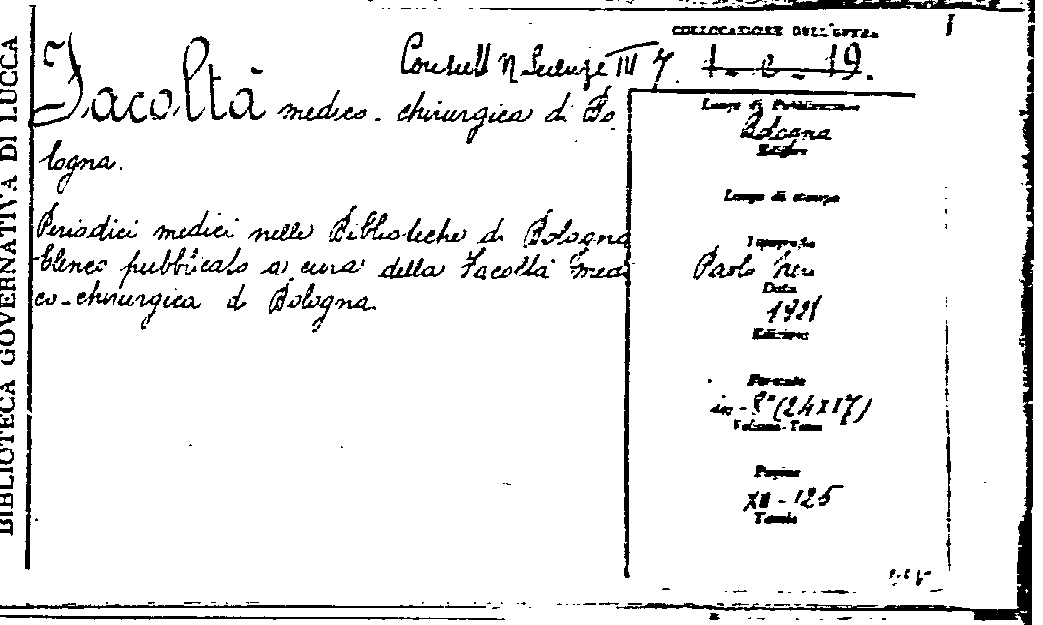 BIBLIOTECA GOVERNATIVA DI LUCCA
COLLOCAZIONE DELL'OPERA
III 7. 1. e. 19.
Facoltà medico-chirurgica di Bo
logna.
Periodici medici nelle Biblioteche di Bologna
Elenco pubblicato a cura della Facoltà medi
co-chirurgica di Bologna.
Luogo di Pubblicazione
Bologna
Editore
Luogo di stampa
Tipografo
Paolo Neri
Data
1921
Edizione
Formato
in-8° (24x17)
Volumi-Tomi
Pagine
XII-125
Tavole